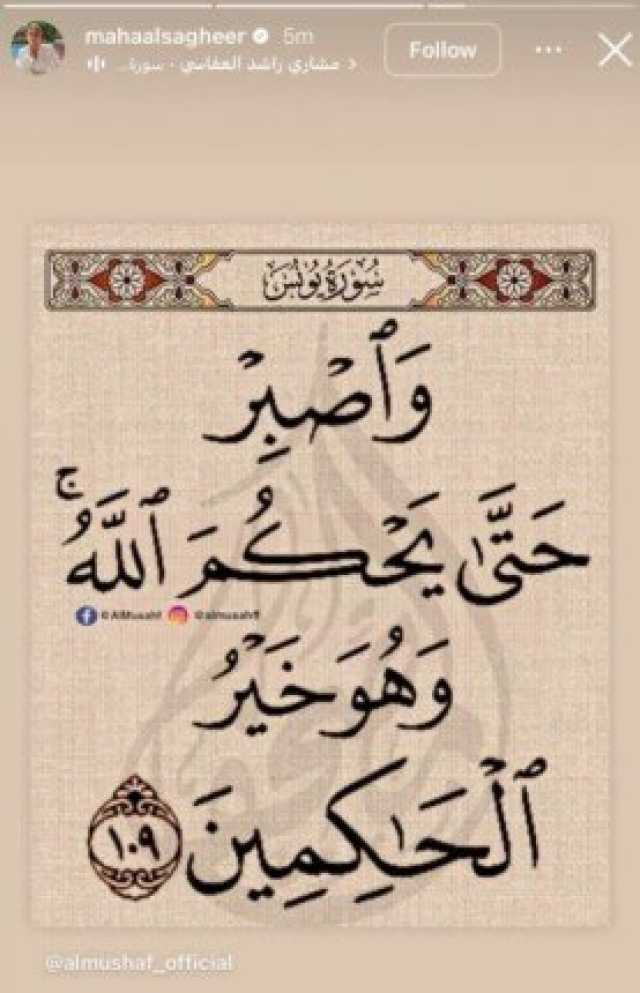 mahaalsagheer 5m
Follow
مشاري راشد العفاسي · سورة...
سُورَةُ يُونُسَ
وَٱصْبِرْ
حَتَّىٰ يَحْكُمَ ٱللَّهُ ۚ
@AlMusahf @almusahff
وَهُوَ خَيْرُ
ٱلْحَـٰكِمِينَ ١٠٩
@almushaf_official